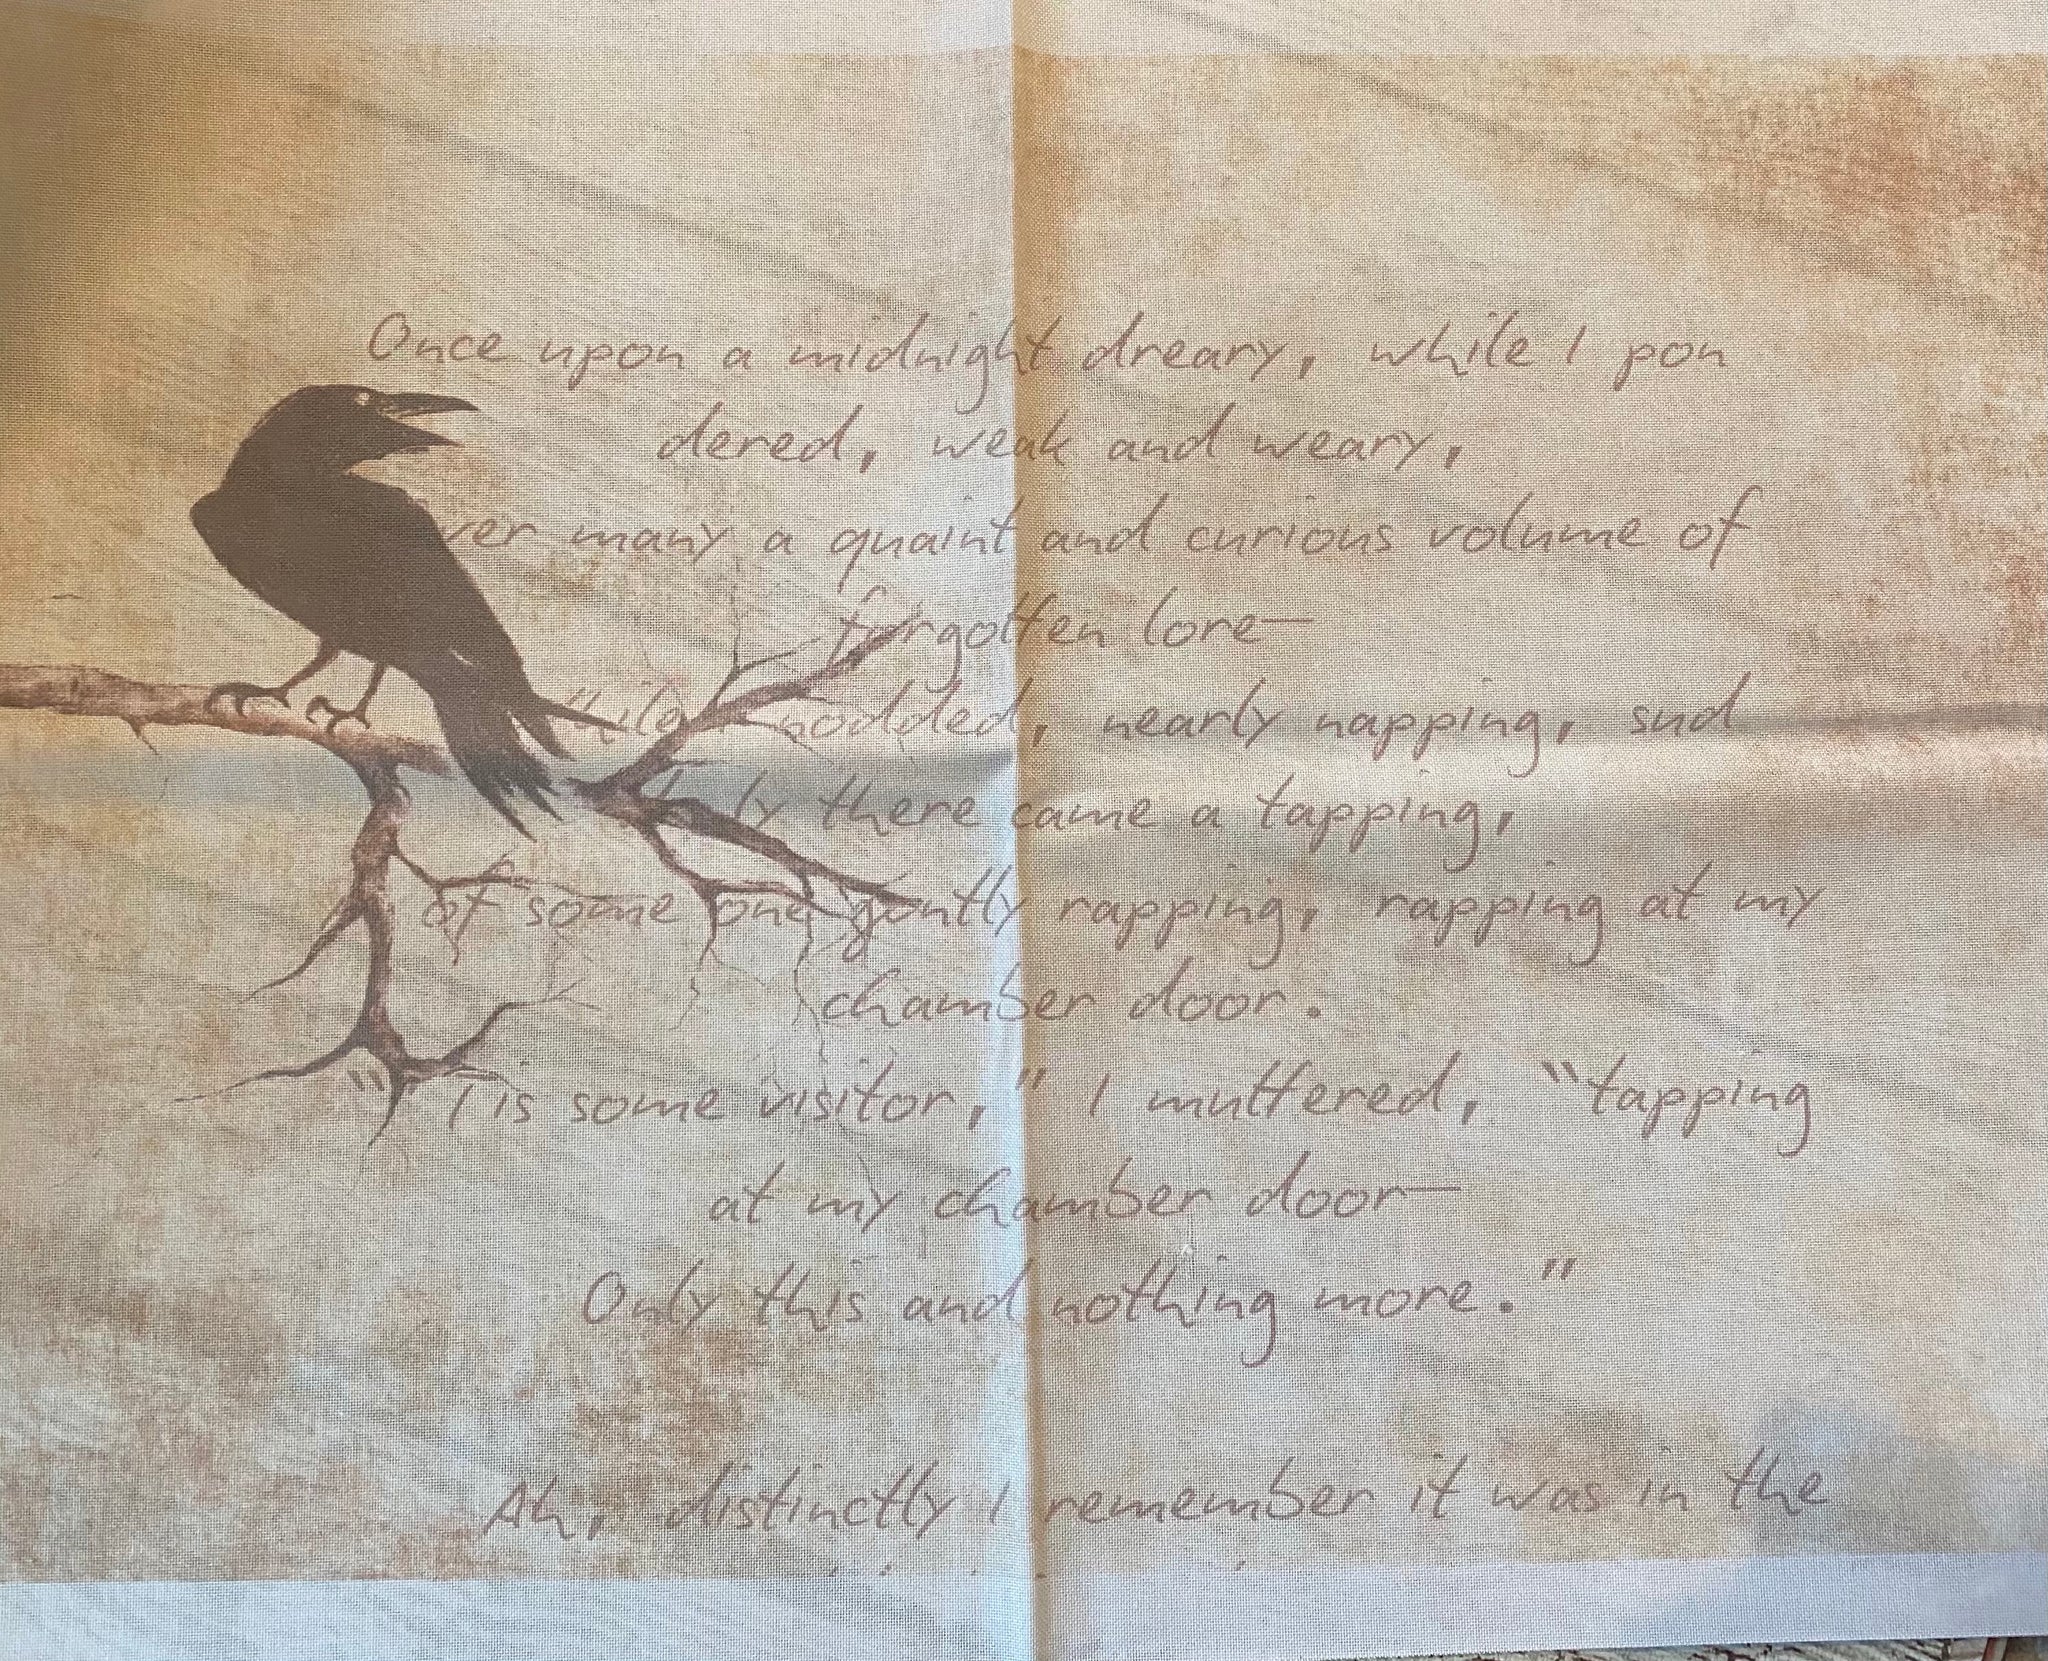 Once upon a midnight dreary, while I pon
dered, weak and weary,
ver many a quaint and curious volume of
forgotten lore—
nodded, nearly napping, sud
ly there came a tapping,
of some one gently rapping, rapping at my
chamber door.
"'Tis some visitor," I muttered, "tapping
at my chamber door—
Only this and nothing more."
Ah, distinctly I remember it was in the